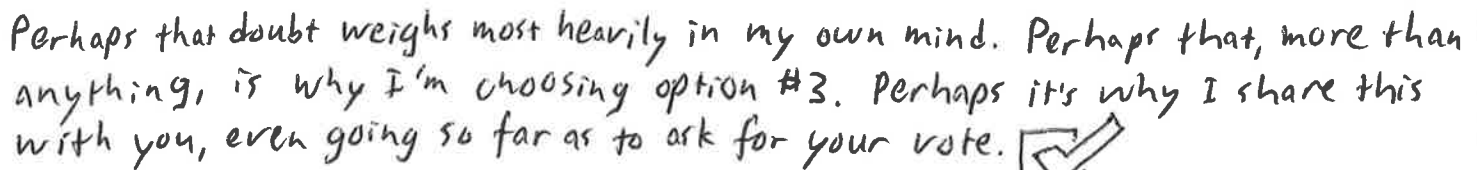 Perhaps that doubt weighs most heavily in my own mind. Perhaps that, more than
anything, is why I'm choosing option #3. Perhaps it's why I share this
with you, even going so far as to ask for your vote.